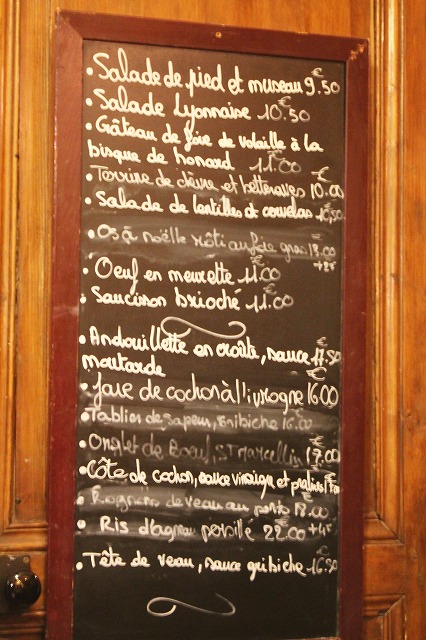 • Salade de pied et museau 9.50 €
• Salade Lyonnaise 10.50 €
• Gâteau de foie de volaille à la
bisque de homard 11.00 €
• Terrine de chèvre et betteraves 10.00 €
• Salade de lentilles et cervelas 10.50 €
• Os à moëlle rôti au
• Oeuf en meurette 11.00 €
• Saucisson brioché 11.00 €
• Andouillette en croûte, sauce 17.50 €
moutarde
• Joue de cochon à l'ivrogne 16.00 €
• Tablier de sapeur, gribiche 16.00 €
• Onglet de Boeuf, St Marcellin 17.00 €
• Côte de cochon, sauce vinaigre et pralines
• Rognons de veau au porto 18.00 €
• Ris d'agneau persillé 22.00 € +4€
• Tête de veau, sauce gribiche 16.50 €